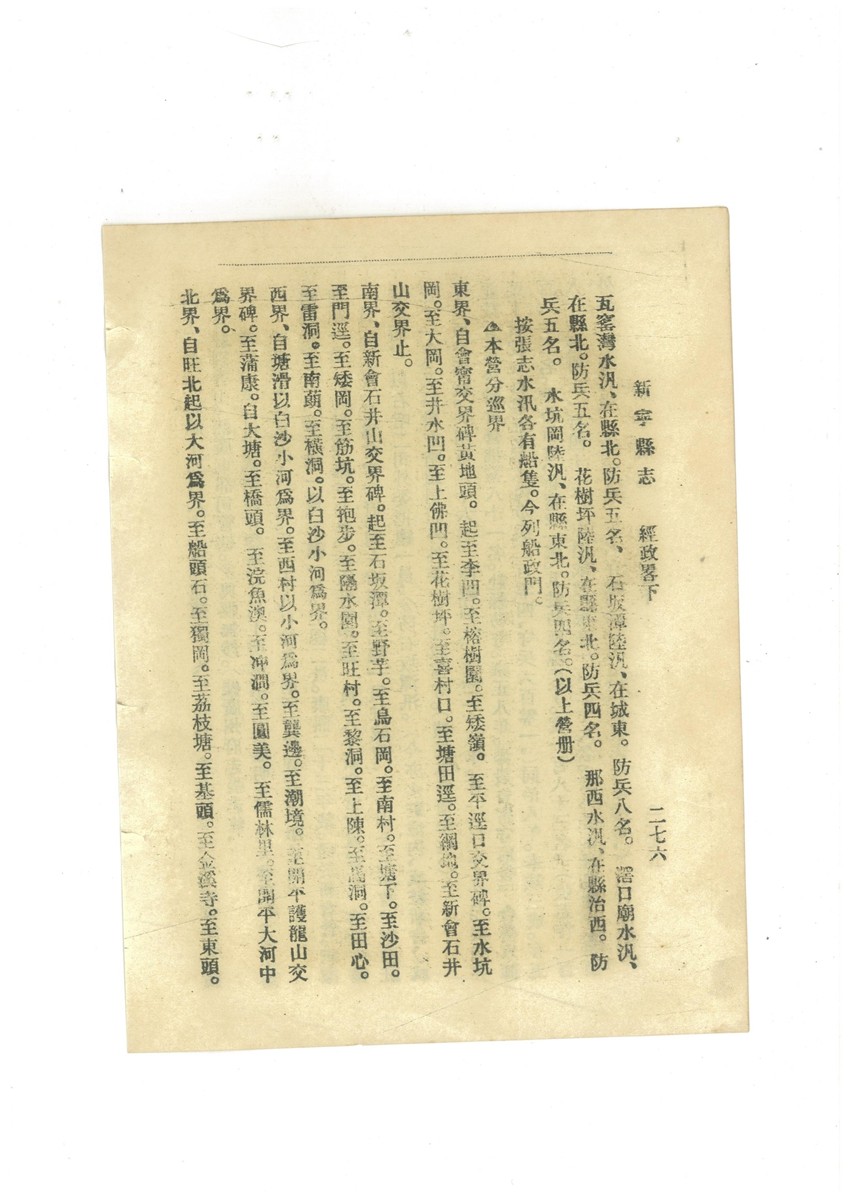 新寧縣志　經政畧下　二七六
瓦窰灣水汎、在縣北。防兵五名、　石坂潭陸汎、在城東。防兵八名。　滘口廟水汎、
在縣北。防兵五名。　花樹坪陸汎、在縣東北。防兵四名。　那西水汎、在縣治西。防
兵五名。　水坑岡陸汎、在縣東北。防兵四名。（以上營册）
按張志水汛各有船隻。今列船政門。
本營分巡界
東界、自會甯交界碑黃地頭。起至李凹。至榕樹園。至矮嶺。至平逕口交界碑。至水坑
岡。至大岡。至井水凹。至上佛凹。至花樹坪。至喜村口。至塘田逕。至綱地。至新會石井
山交界止。
南界、自新會石井山交界碑。起至石坂潭。至野芋。至烏石岡。至南村。至塘下。至沙田。
至門逕。至矮岡。至筋坑。至抱步。至隔水園。至旺村。至黎洞。至上陳。至馬洞。至田心。
至雷洞。至南蓢。至橫洞。以白沙小河爲界。
西界、自塘滑以白沙小河爲界。至西村以小河爲界。至龔邊。至潮境。至開平護龍山交
界碑。至蒲康。白大塘。至橋頭。至浣魚澳。至冲澗。至圓美。至儒林里。至開平大河中
爲界。
北界、自旺北起以大河爲界。至船頭石。至獨岡。至荔枝塘。至基頭。至金溪寺。至東頭。